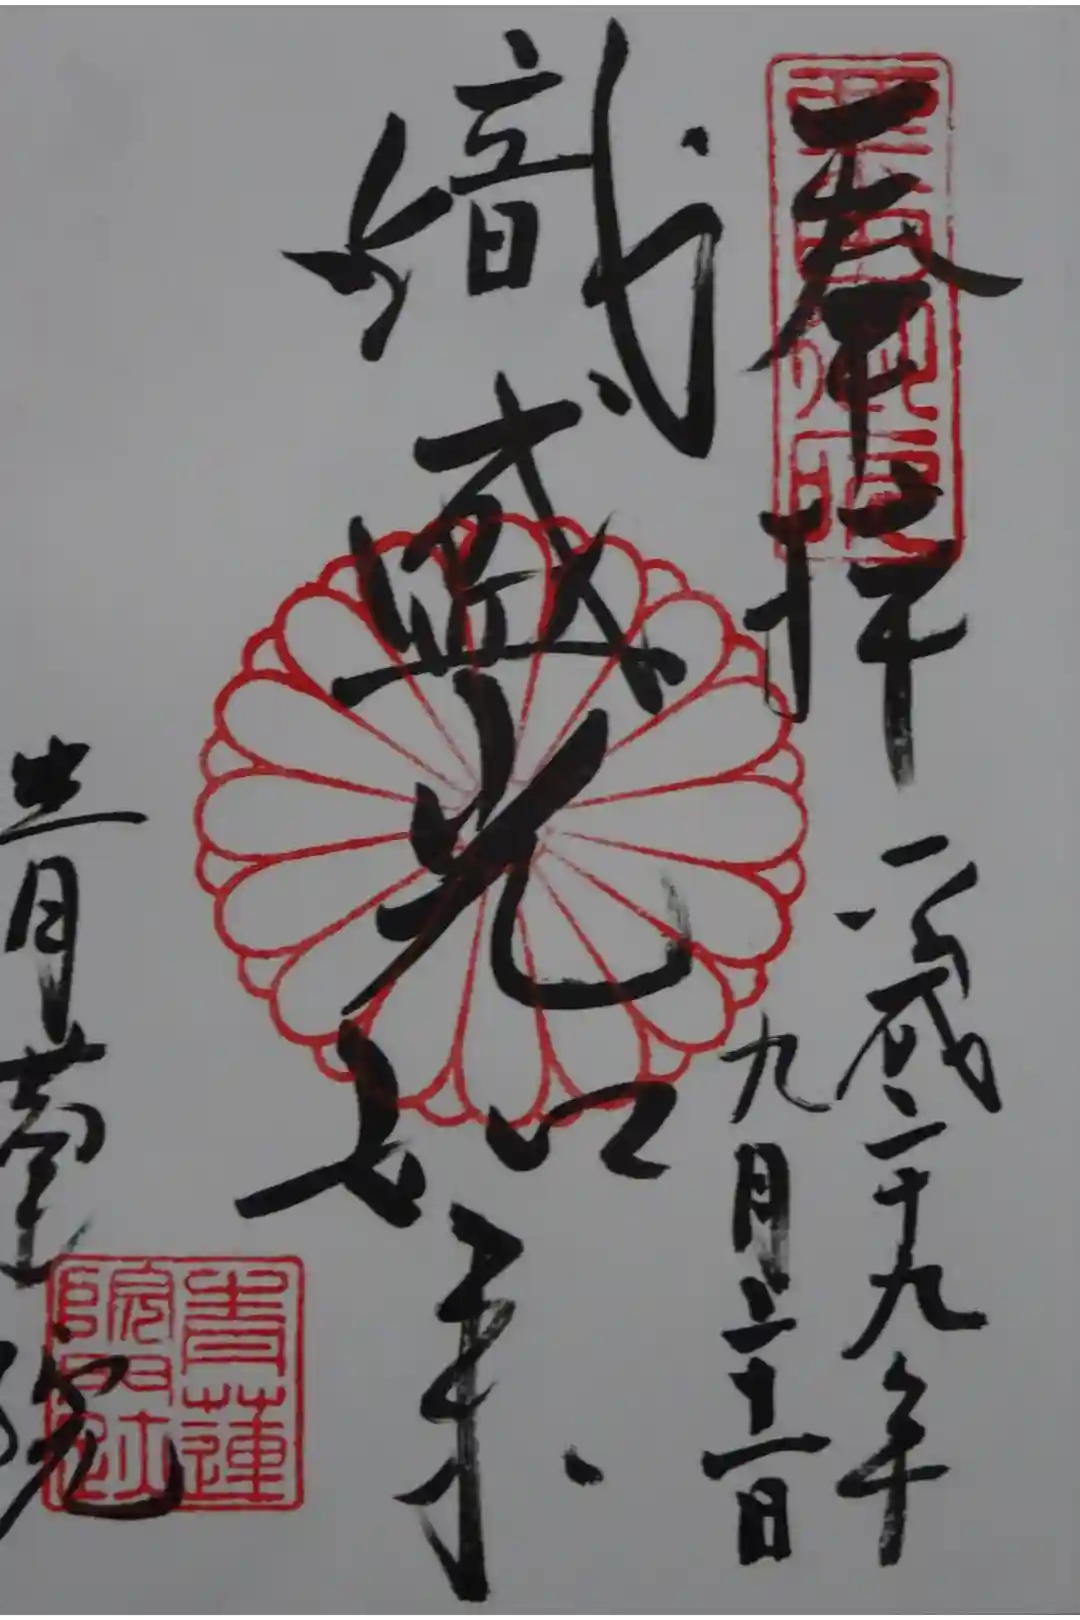 奉拝
平成二十九年
九月二十一日
熾盛光如来
青蓮院
青蓮
院門跡